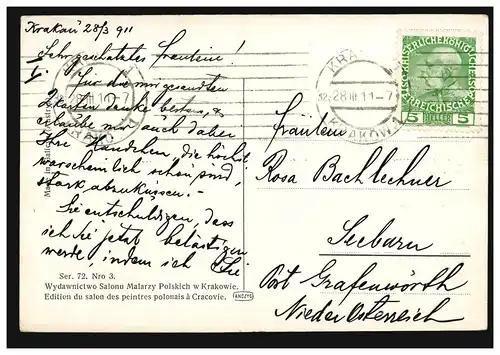 Krakau 28/3 911
Sehr geschätztes Fräulein!
Für die mir gesandten
2 Karten danke bestens, &
erlaube mir auch dafür
Ihre Händchen die höchst
warscheinlich schön sind,
stark abzuküssen.-
Sie entschuldigen, dass
ich Sie jetzt belästigen
werde, indem ich Sie
Ser. 72. Nro 3.
Wydawnictwo Salonu Malarzy Polskich w Krakowie.
Edition du salon des peintres polonais à Cracovie.
ANCZYC
Made in
KRAKAU
28 III 11 - 7
KRAKÓW 1
KAISERLICHE KÖNIGLICHE
ÖSTERREICHISCHE
5 HELLER 5
Fräulein
Rosa Bachlechner
Seebarn
Post Grafenwörth
Nieder Österreich